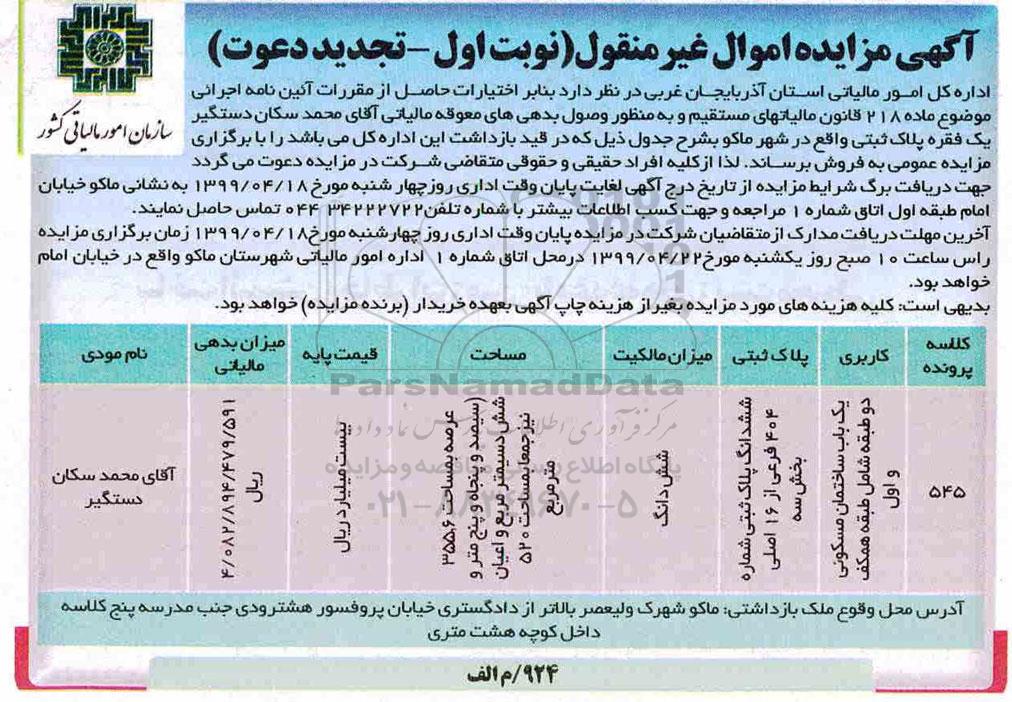 آگهی مزایده اموال غیر منقول(نوبت اول -تجدید دعوت)
سازمان امور مالیاتی کشور
اداره کل امور مالیاتی استان آذربایجان غربی در نظر دارد بنابر اختیارات حاصل از مقررات آئین نامه اجرائی
موضوع ماده ۲۱۸ قانون مالیاتهای مستقیم و به منظور وصول بدهی های معوقه مالیاتی آقای محمد سکان دستگیر
یک فقره پلاک ثبتی واقع در شهر ماکو بشرح جدول ذیل که در قید بازداشت این اداره کل می باشد را با برگزاری
مزایده عمومی به فروش برساند. لذا از کلیه افراد حقیقی و حقوقی متقاضی شرکت در مزایده دعوت می گردد
جهت دریافت برگ شرایط مزایده از تاریخ درج آگهی لغایت پایان وقت اداری روز چهار شنبه مورخ ۱۳۹۹/۰۴/۱۸ به نشانی ماکو خیابان
امام طبقه اول اتاق شماره ۱ مراجعه و جهت کسب اطلاعات بیشتر با شماره تلفن ۳۴۲۲۲۷۲۲ ۰۴۴ تماس حاصل نمایند.
آخرین مهلت دریافت مدارک از متقاضیان شرکت در مزایده پایان وقت اداری روز چهارشنبه مورخ ۱۳۹۹/۰۴/۱۸ زمان برگزاری مزایده
راس ساعت ۱۰ صبح روز یکشنبه مورخ ۱۳۹۹/۰۴/۲۲ درمحل اتاق شماره ۱ اداره امور مالیاتی شهرستان ماکو واقع در خیابان امام
خواهد بود.
بدیهی است: کلیه هزینه های مورد مزایده بغیر از هزینه چاپ آگهی بعهده خریدار (برنده مزایده) خواهد بود.
کلاسه
پرونده
کاربری
پلاک ثبتی
میزان مالکیت
مساحت
قیمت پایه
میزان بدهی
مالیاتی
نام مودی
۵۴۵
یک باب ساختمان مسکونی
دو طبقه شامل طبقه همکف
و اول
ششدانگ پلاک ثبتی شماره
۴۰۴ فرعی از ۱۶ اصلی
بخش سه
شش دانگ
عرصه بمساحت ۳۵۵.۶
(سیصد و پنجاه و پنج متر و
شش دسیمتر مربع و اعیان
نیز جمعا بمساحت ۵۲۰
مترمربع
بیست میلیارد ریال
۴/۰۸۲/۸۹۴/۴۷۹/۵۹۱
ریال
آقای محمد سکان
دستگیر
ParsNamadData
مرکز فرآوری اطلاعات پارس نماد داده ها
پایگاه اطلاع رسانی مناقصه و مزایده
۰۲۱-۸۸۳۴۹۶۷۰-۵
آدرس محل وقوع ملک بازداشتی: ماکو شهرک ولیعصر بالاتر از دادگستری خیابان پروفسور هشترودی جنب مدرسه پنج کلاسه
داخل کوچه هشت متری
۹۲۴/م الف